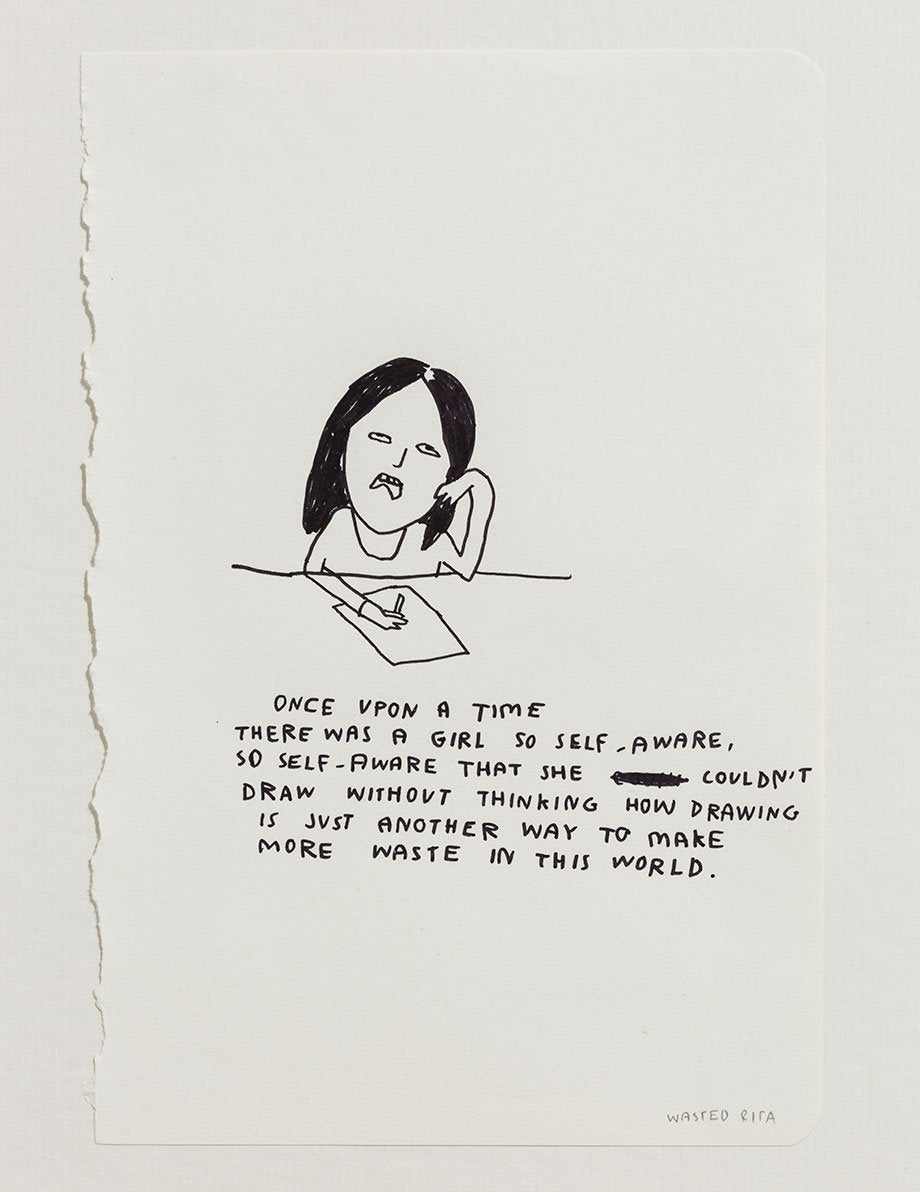 ONCE UPON A TIME
THERE WAS A GIRL SO SELF-AWARE,
SO SELF-AWARE THAT SHE COULDN'T
DRAW WITHOUT THINKING HOW DRAWING
IS JUST ANOTHER WAY TO MAKE
MORE WASTE IN THIS WORLD.
WASTED RITA